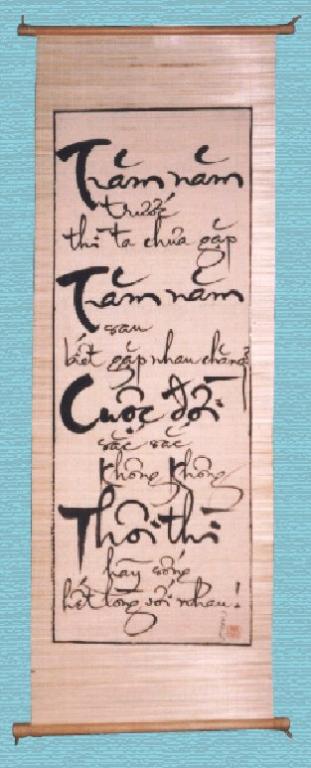 Trăm năm
trước
thì ta chưa gặp
Trăm năm
sau
biết gặp nhau chăng?
Cuộc đời
sắc sắc
không không
Thôi thì
hãy sống
hết lòng với nhau!